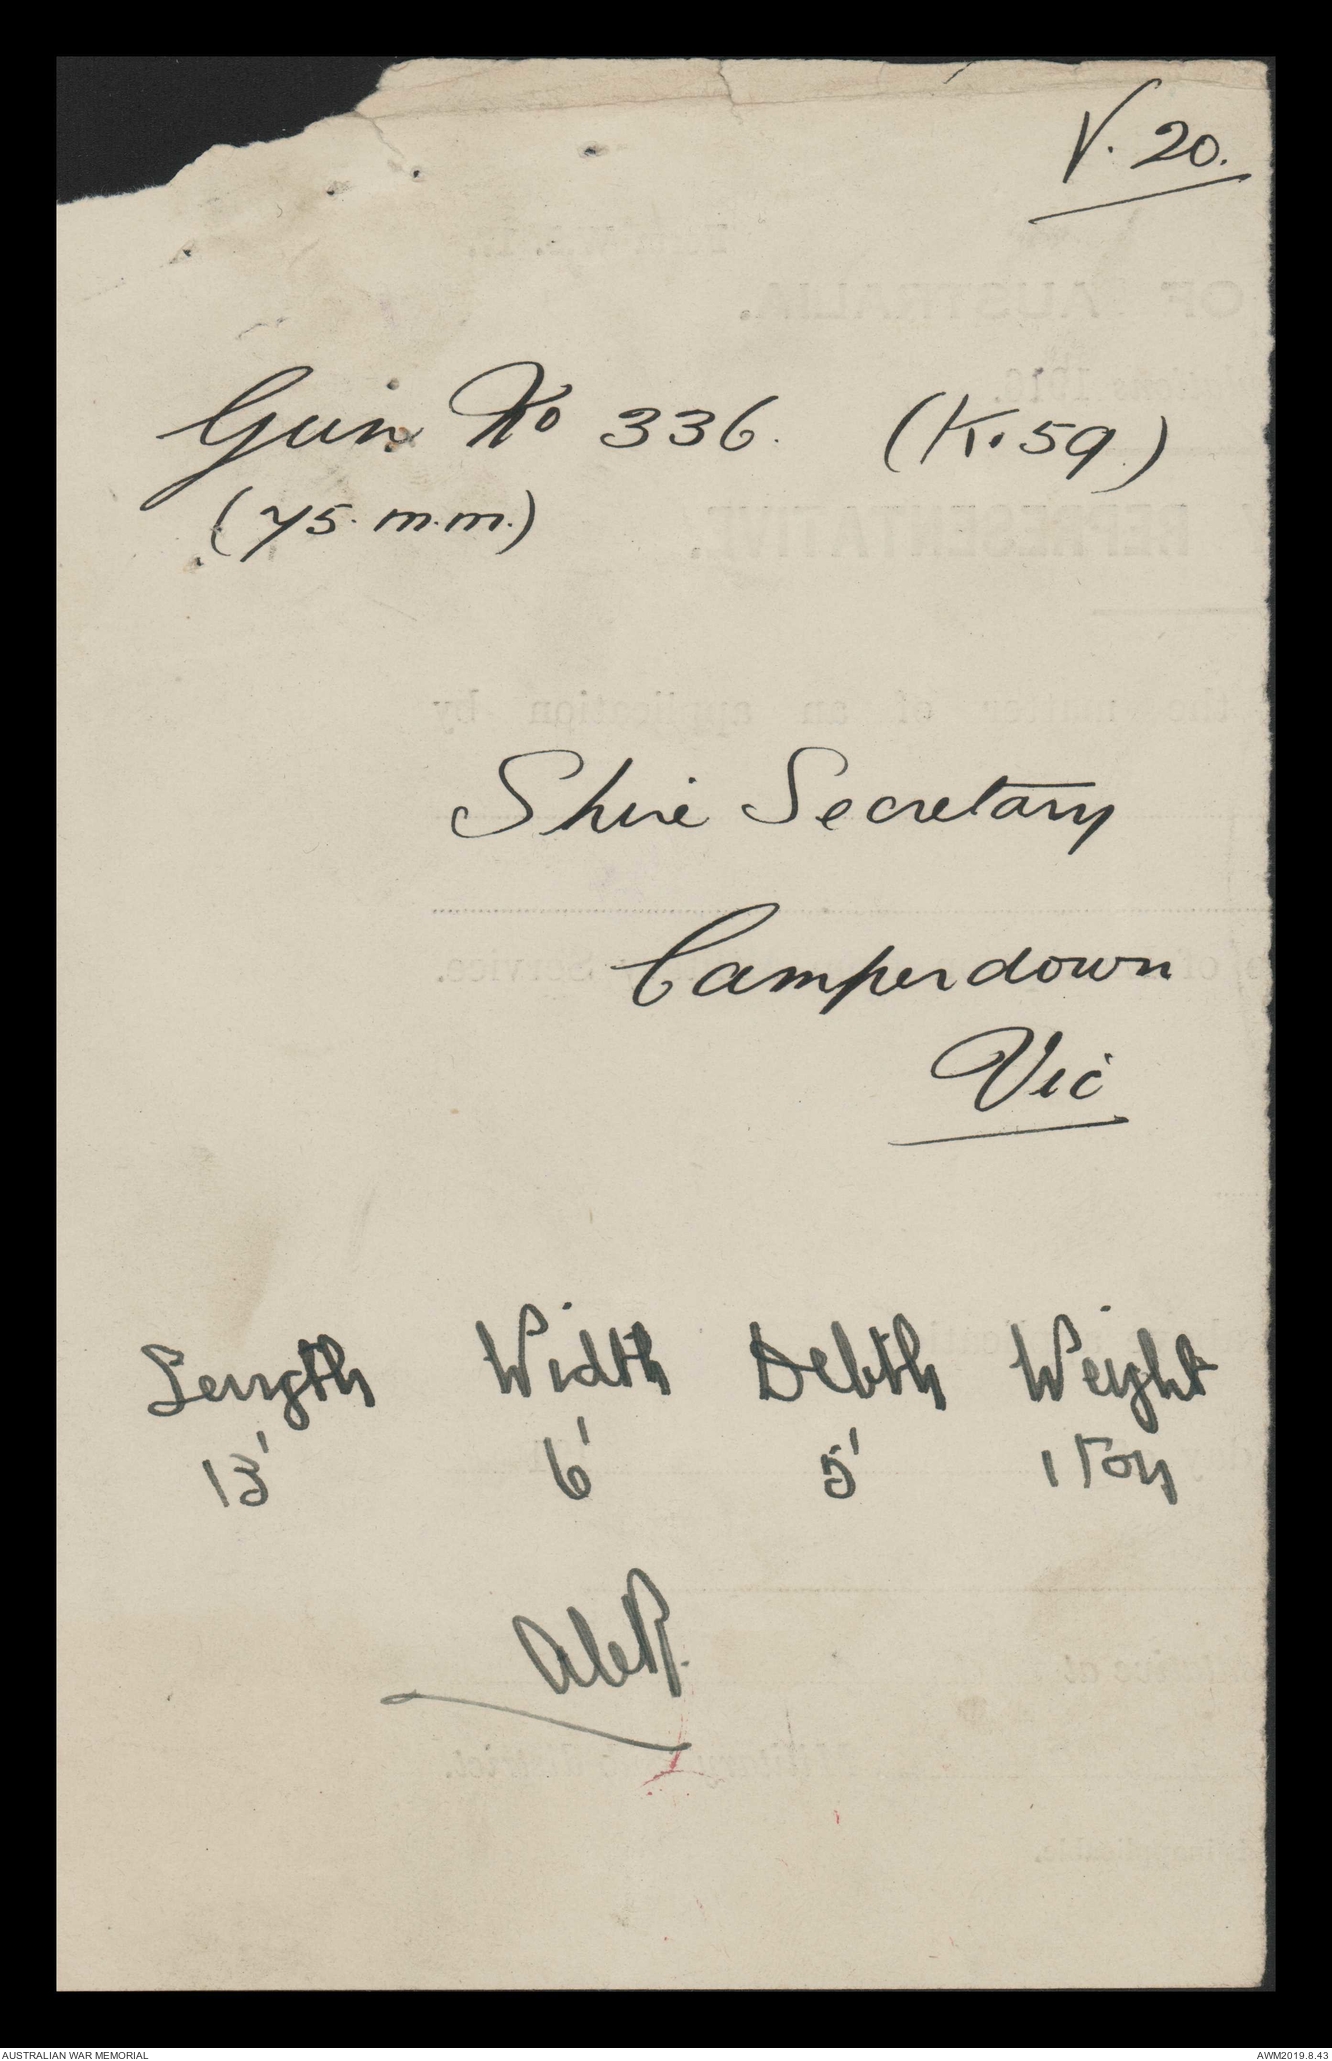 V. 20.
Gun No 336. (K.59)
(75. m.m.)
Shire Secretary
Camperdown
Vic
Length Width Debth Weight
13' 6' 5' 1 Ton
AUSTRALIAN WAR MEMORIAL AWM2019.8.43